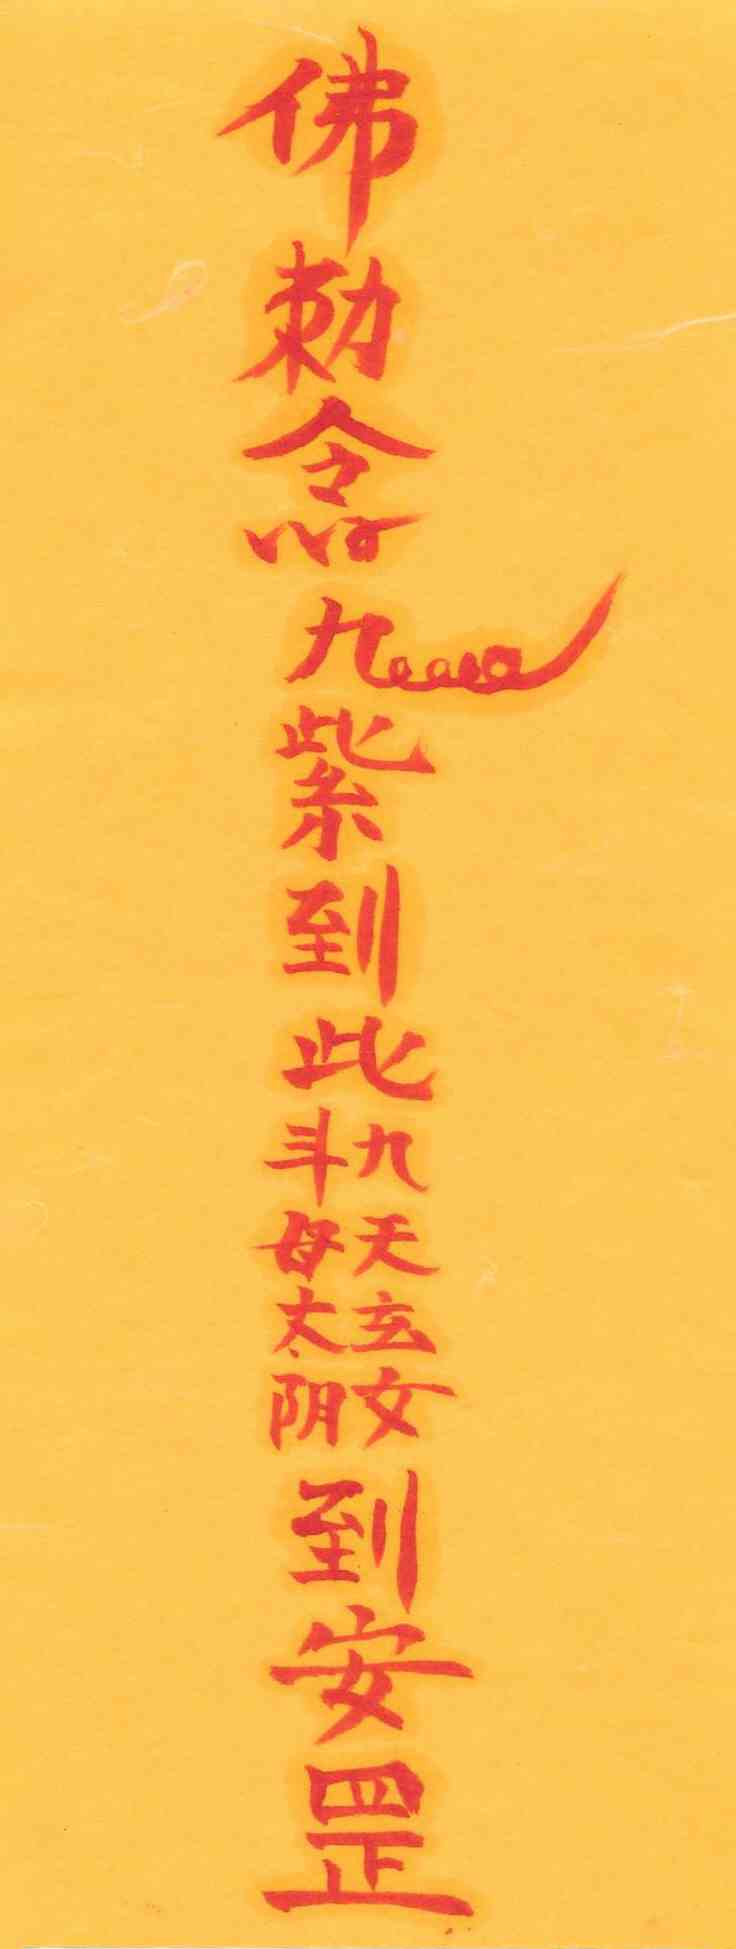 佛
勅
令
九
紫
到
此
九天玄女
斗母太阴
到
安
罡